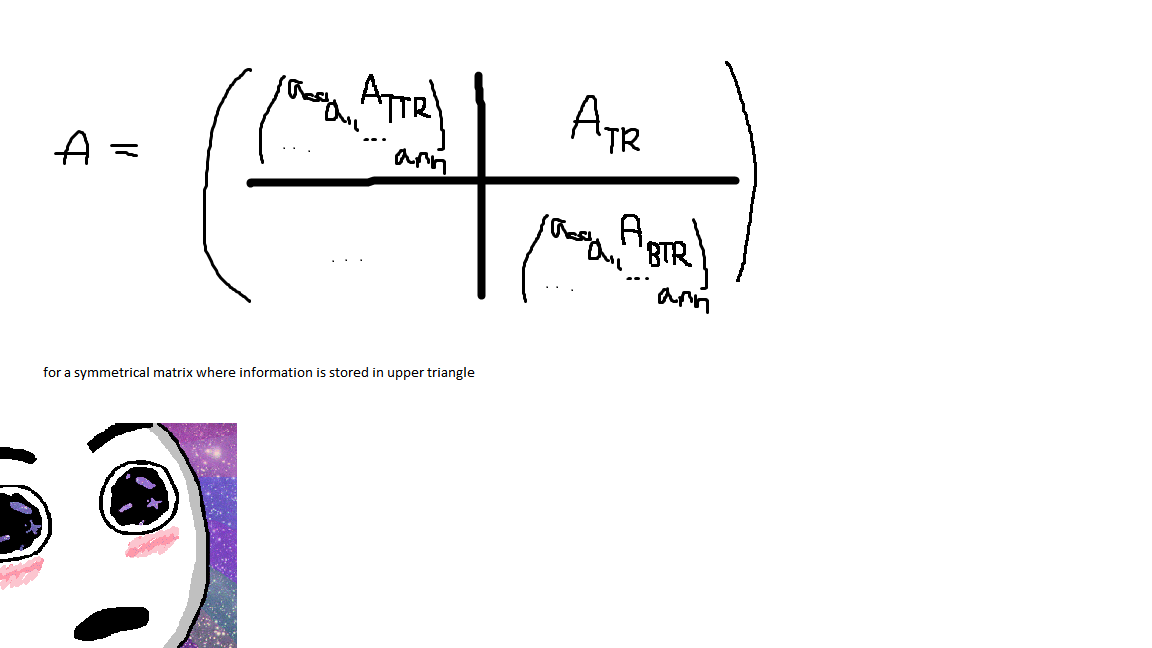 A = A TTR A TR
a₁₁
... ... ann
... A BTR
a₁₁
... ... ann
for a symmetrical matrix where information is stored in upper triangle